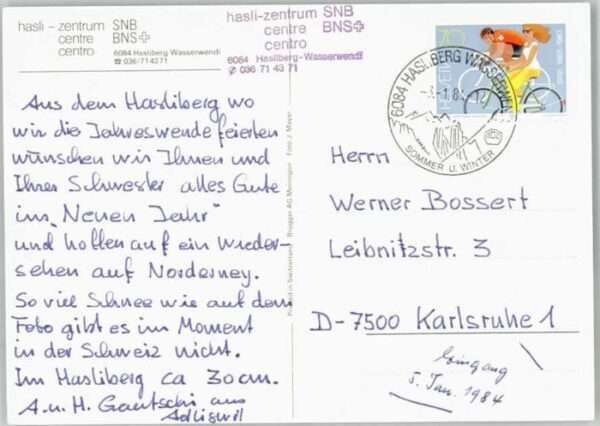 hasli - zentrum SNB
centre BNS+
centro
6084 Hasliberg Wasserwendi
☎ 036/714371
hasli-zentrum SNB
centre BNS+
centro
6084 Hasliberg-Wasserwendi
✆ 036 71 43 71
70
HELVETIA
6084 HASLIBERG WASSERWENDI
SOMMER U. WINTER
Aus dem Hasliberg wo
wir die Jahreswende feierten
wünschen wir Ihnen und
Ihrer Schwester alles Gute
im „Neuen Jahr"
und hoffen auf ein Wieder-
sehen auf Norderney.
So viel Schnee wie auf dem
Foto gibt es im Moment
in der Schweiz nicht.
Im Hasliberg ca 30 cm.
A. u. H. Gautschi aus
Adliswil
Brugger AG Meiringen Foto J. Mayer
Printed in Switzerland
Herrn
Werner Bossert
Leibnitzstr. 3
D-7500 Karlsruhe 1
Eingang
5. Jan. 1984